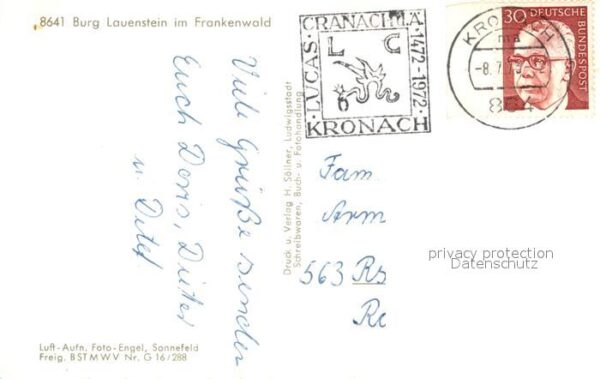 8641 Burg Lauenstein im Frankenwald
Viele Grüße senden
Euch Doris, Dieter
u. Detlef
Druck u. Verlag H. Söllner, Ludwigsstadt
Schreibwaren, Buch- u. Fotohandlung
LUCAS · CRANACH D.Ä. · 1472-1972 ·
L C
KRONACH
KRONACH
ma
-8.7.
864
30
DEUTSCHE
BUNDESPOST
Fam
Arm
563 Rs
Re
privacy protection
Datenschutz
Luft-Aufn. Foto-Engel, Sonnefeld
Freig. BSTMWV Nr. G 16/288